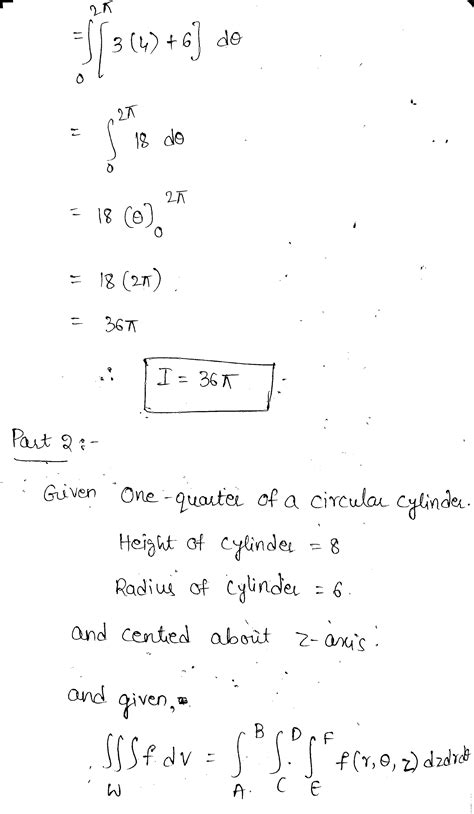 = ∫₀^2π [3(4)+6] dθ
= ∫₀^2π 18 dθ
= 18 (θ)₀^2π
= 18 (2π)
= 36π
∴ I = 36π
Part 2 :-
Given One-quarter of a circular cylinder.
Height of cylinder = 8
Radius of cylinder = 6.
and centred about z-axis.
and given,
∫∫∫_W f dv = ∫_A^B ∫_C^D ∫_E^F f(r,θ,z) dzdrdθ